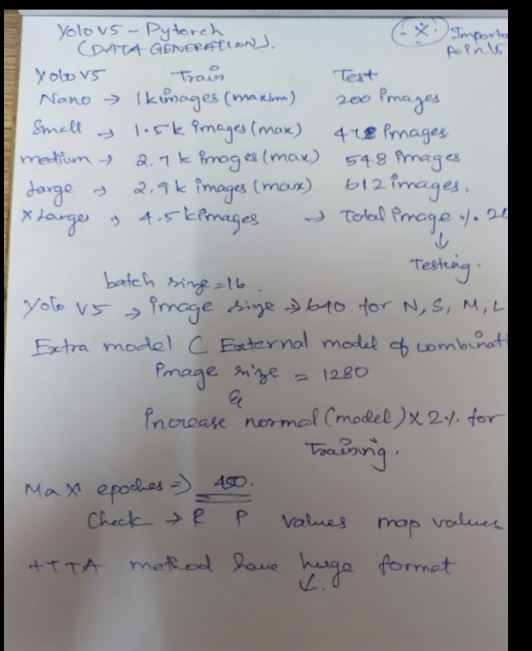 Yolo V5 - Pytorch
(DATA GENERATION).
- X - Importa
points
Yolo V5 Train Test
Nano → 1k images (maxim) 200 images
Small → 1.5k images (max) images
medium → 2.7k images (max) 548 images
Large → 2.9k images (max) 612 images.
X Larger → 4.5k images → Total image %. 20
↓
Testing.
batch size = 16.
Yolo V5 → image size → 640 for N, S, M, L
Extra model C External model of combinati
image size = 1280
&
increase normal (model) X 2 %. for
Training.
Max epoches =>
Check → R P values map values
+ TTA method have huge format
↓.